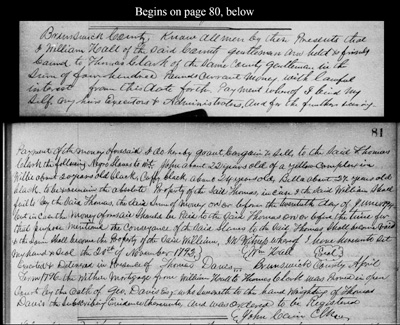 Begins on page 80, below
Brunswick County, Know all men by these Presents that
I William Hall of the said County gentleman am held & firmly
bound to Thomas Clark of the same County gentleman in the
Sum of four hundred Pounds Current money with Lawful
interest from this date for the Payment whereof I bind my
self my heirs Executors & Administrators, And for the further securing
81
Payment of the money aforesaid I do hereby grant bargain & sell, to the said Thomas
Clark the following Negro Slaves to wit, John about 22 years old of a yellow complexion
Billie about 20 years old black, Cuffy black about 24 years old, Bella about 27 years old
black, to be & remain the absolute Property of the said Thomas in case I the said William shall
fail to pay the said Thomas, the said Sum of money on or before the twentieth day of June 1774
but in case the money aforesaid Should be Paid to the said Thomas on or before the time for
that purpose mentioned the Conveyance of the said Slaves to the said Thomas Shall become void
& the same Shall become the Property of the said William, In Witness whereof I have hereunto set
my hand & seal the 20th of November 1773,
Wm Hall (Seal)
Executed & Delivered in Presence of Thomas Davis Brunswick County April
Term 1774 the within mortgage from William Hall to Thomas Clark was proved in open
Court by the Oath of Geo. Davis Esq. who sweareth to the hand Writing of Thomas
Davis the Subscribing Evidence thereunto and was ordered to be Registered
John Cain C Clerk